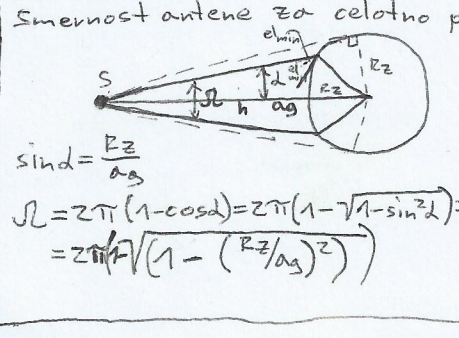 Smernost antene za celotno p
elmin
S
α
elmin
Rz
Ω
Rz
h
ag
sinα = Rz/ag
Ω = 2π(1-cosα) = 2π(1-√1-sin²α) =
= 2π(1-√(1-(Rz/ag)²))